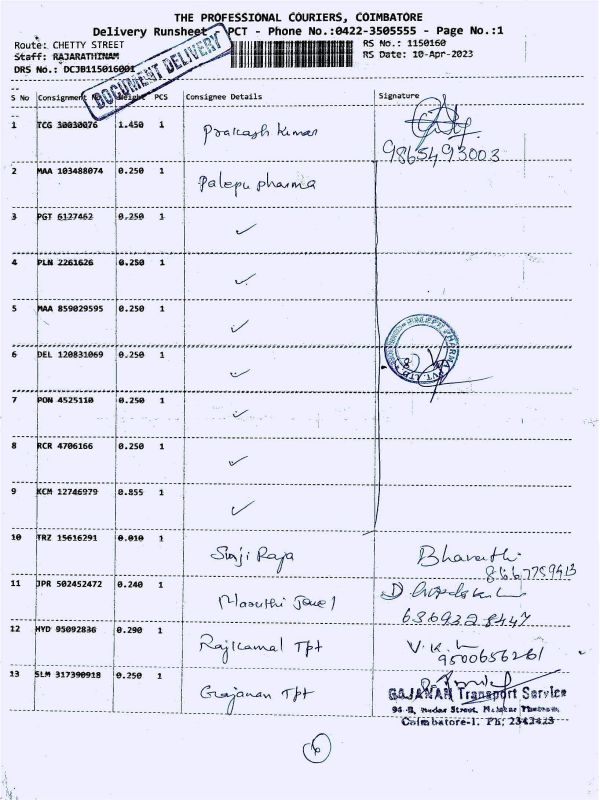 THE PROFESSIONAL COURIERS, COIMBATORE
Delivery Runsheet PCT - Phone No.:0422-3505555 - Page No.:1
Route: CHETTY STREET
RS No.: 1150160
Staff: RAJARATHINAM
RS Date: 10-Apr-2023
DRS No.: DCJB115016001
DOCUMENT DELIVERY
S No Consignment Weight PCS Consignee Details Signature
1 TCG 30030076 1.450 1 Prakash Kumar
9865493003
2 MAA 103488074 0.250 1 Palepu pharma
3 PGT 6127462 0.250 1 ✓
4 PLN 2261626 0.250 1 ✓
5 MAA 859029595 0.250 1 ✓
6 DEL 120831069 0.250 1 ✓
7 PON 4525110 0.250 1 ✓
8 RCR 4706166 0.250 1 ✓
9 KCM 12746979 0.855 1 ✓
10 TRZ 15616291 0.010 1 Raja Bharathi
11 JPR 502452472 0.240 1
12 HYD 95092836 0.290 1 Rajkamal Tpt V.K.
9500656261
13 SLM 317390918 0.250 1 Gajanan Tpt
GAJANAN Transport Service
Street,
Coimbatore-1. Ph: 2342423